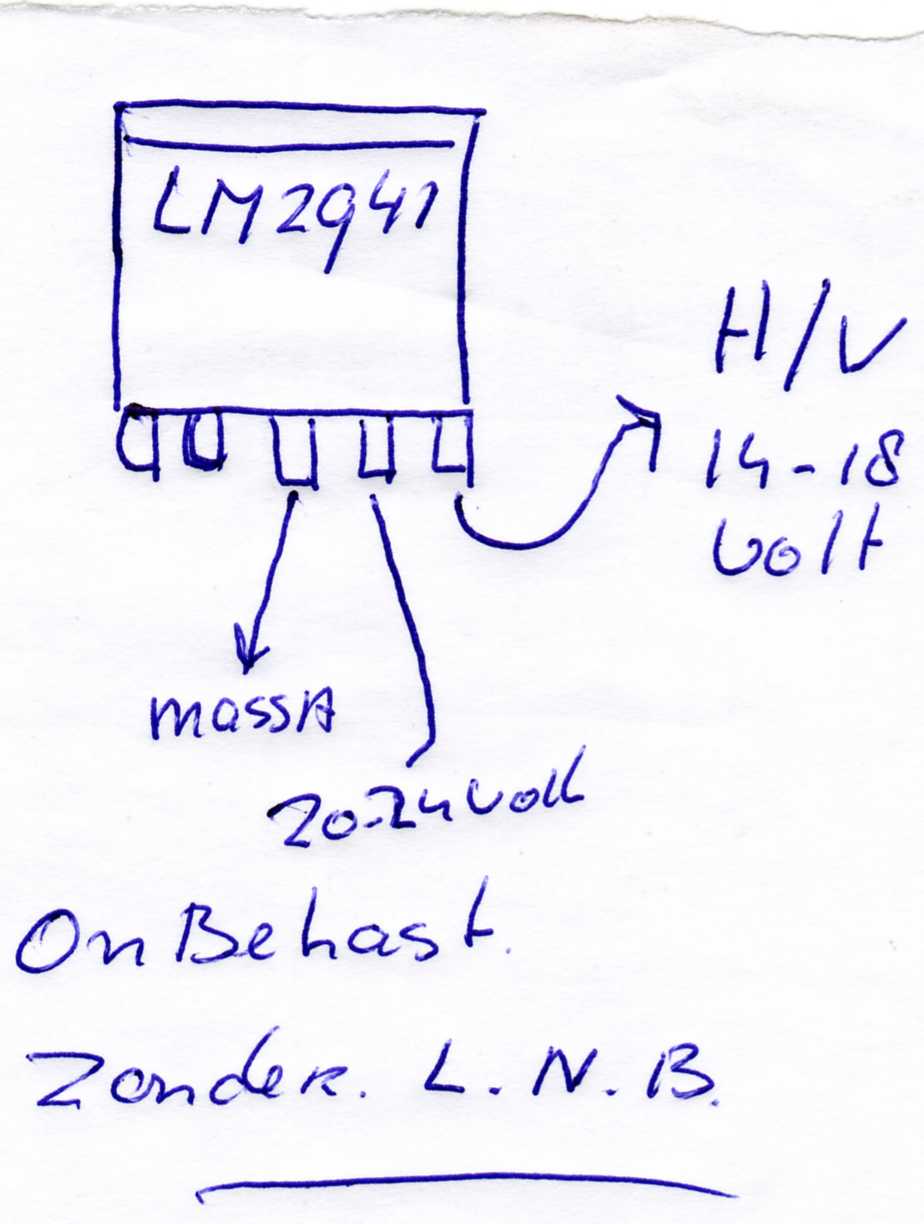 LM2941
H/V
14-18
Volt
massA
20-24 Volt
OnBelast.
Zonder. L.N.B.